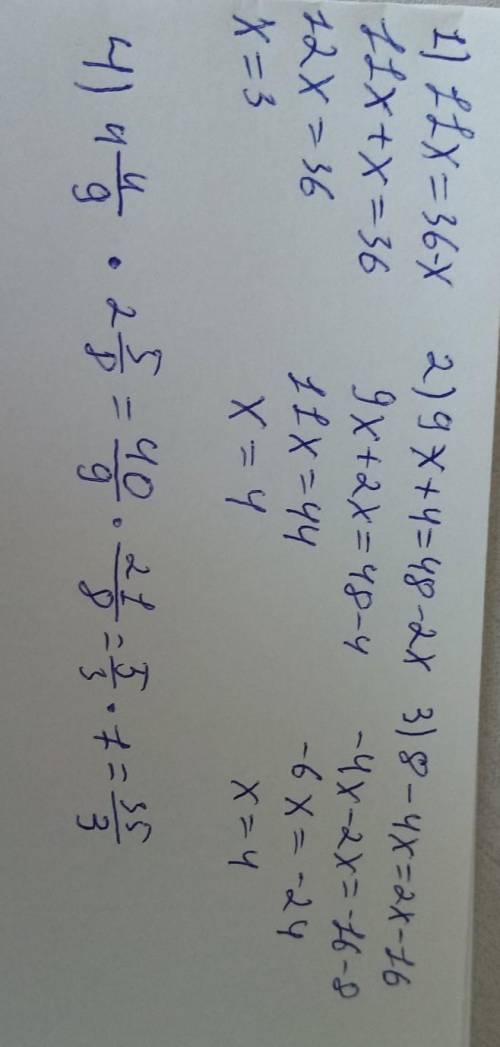 1) 11x = 36-x
11x + x = 36
12x = 36
x = 3
2) 9x + 4 = 48 - 2x
9x + 2x = 48 - 4
11x = 44
x = 4
3) 8 - 4x = 2x - 16
-4x - 2x = -16 - 8
-6x = -24
x = 4
4) 4 4/9 · 2 5/8 = 40/9 · 21/8 = 5/3 · 7 = 35/3